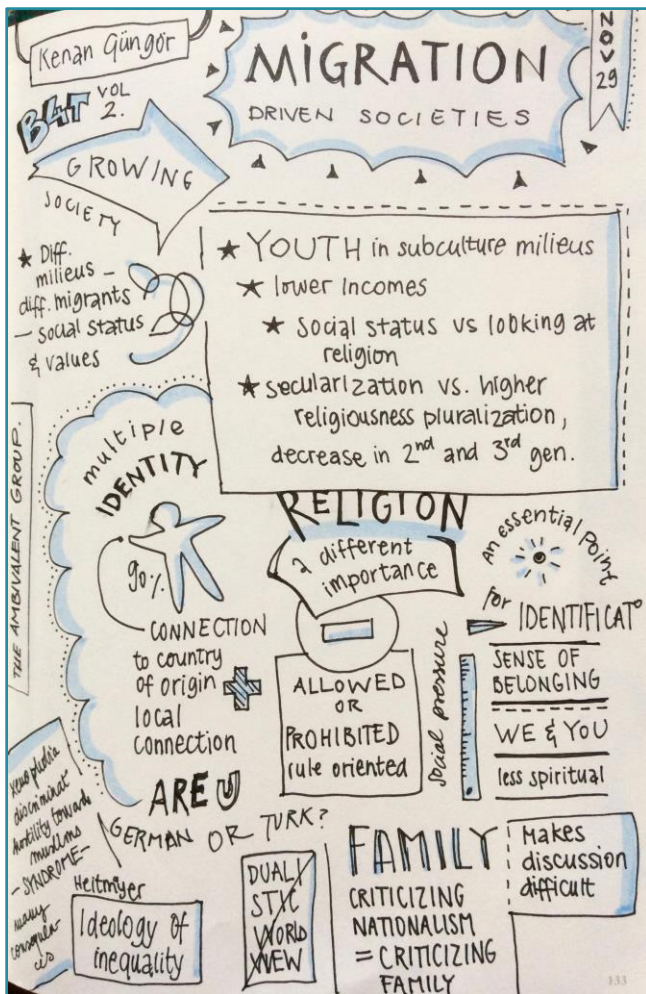 Kenan Güngör
B4T VOL 2.
MiGRATION
DRIVEN SOCIETIES
NOV
29
GROWING
SOCIETY
★ Diff.
milieus –
diff. migrants
– social status
& values
★ YOUTH in subculture milieus
★ lower Incomes
★ Social status vs looking at
religion
★ secularization vs. higher
religiousness pluralization,
decrease in 2nd and 3rd gen.
THE AMBIVALENT GROUP.
multiple
IDENTITY
90%
CONNECTION
to country
of origin
local
connection
RELIGION
different
importance
ALLOWED
OR
PROHIBITED
rule oriented
social pressure
An essential Point
for IDENTIFICAT
SENSE OF
BELONGING
WE & YOU
less spiritual
xenophobia
discriminat
hostility towards
muslims
– SYNDROME –
many
ARE U
GERMAN OR TURK?
Heitmiyer
Ideology of
inequality
DUALI
STIC
WORLD
VIEW
FAMILY
CRITICIZING
NATIONALISM
= CRITICIZING
FAMILY
Makes
discussion
difficult
133